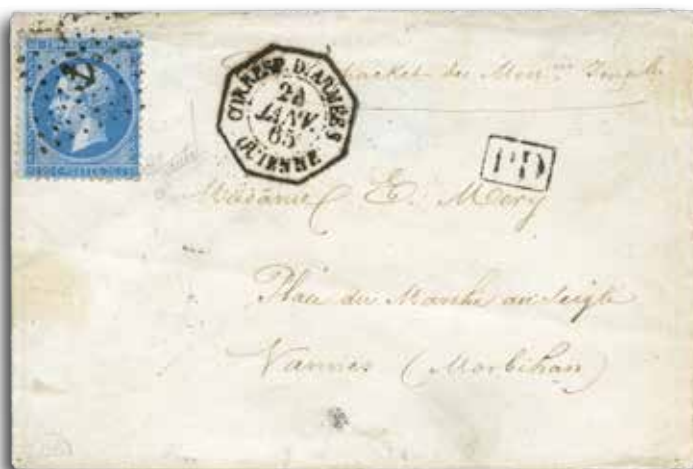 packet des
CORRESP. D.ARMÉES
24
JANV.
65
GUIENNE
PD
Madame E. Mery
Place du Marché au Seigle
Vannes (Morbihan)